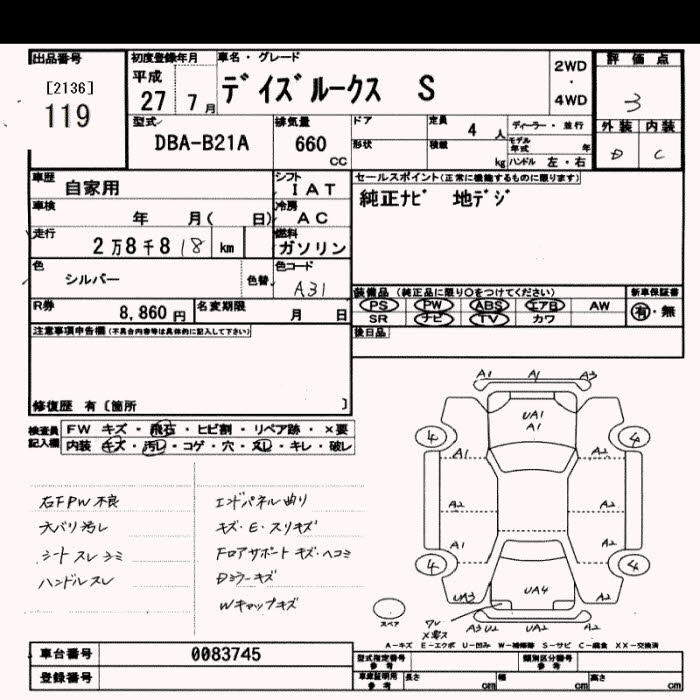 出品番号
[2136]
119
初度登録年月
平成
27 7月
車名・グレード
デイズルークス S
2WD
・
4WD
評価点
3
外装 内装
D C
型式
DBA-B21A
排気量
660
CC
ドア
形状
定員 4 人
積載 kg
ディーラー・並行
モデル年式 年
ハンドル 左・右
車歴
自家用
シフト
IAT
車検
年 月( 日)
冷房
AC
走行
2万8千818 km
燃料
ガソリン
色
シルバー
色替
色コード
A31
R券
8,860円
名変期限
月 日
セールスポイント(正常に機能するものに限ります)
純正ナビ 地デジ
装備品(純正品に限り○をつけてください)
新車保証書
PS PW ABS エアB AW
SR ナビ TV カワ
有・無
後日品
注意事項申告欄(不具合内容等は具体的に記入して下さい)
修復歴 有〔箇所 〕
検査員記入欄
FW キズ・飛石・ヒビ割・リペア跡・×要
内装 キズ・汚レ・コゲ・穴・スレ・キレ・破レ
右FPW不良
天バリ汚レ
シートスレシミ
ハンドルスレ
エンドパネル曲り
キズ・E・スリキズ
Fロアサポートキズ・ヘコミ
Dミラーキズ
Wキャップキズ
A1 A1 A3
UA1
A1
4 4
A1 A2
A2 A2
A1 A2
4 4
UA3 UA4 A2
スペア
ワレ
X要ス
A3 U2 UA2 A2
A-キズ E-エクボ U-凹み W-補修跡 S-サビ C-腐食 XX-交換済
車台番号
0083745
登録番号
型式指定番号
参考
類別区分番号
参考
車庫証明用
参考
長さ cm 幅 cm 高さ cm